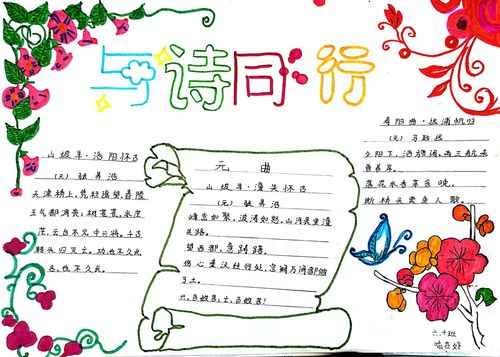 与诗同行
山坡羊·洛阳怀古
(元) 张养浩
天津桥上,凭栏遥望,舂陵
王气都凋丧。树苍苍,水茫
茫,云台不见中兴将。千古
转头归灭亡。功,也不久长
名,也不久长。
元 曲
山坡羊·潼关怀古
(元) 张养浩
峰峦如聚,波涛如怒。山河表里潼
关路。
望西都,意踌蹰。
伤心秦汉经行处,宫阙万间都做
了土。
兴,百姓苦;亡,百姓苦!
寿阳曲·远浦帆归
(元) 马致远
夕阳下,酒旆闲,两三航未
曾着岸。
落花水香茅舍晚,
断桥头卖鱼人散。
六.4班